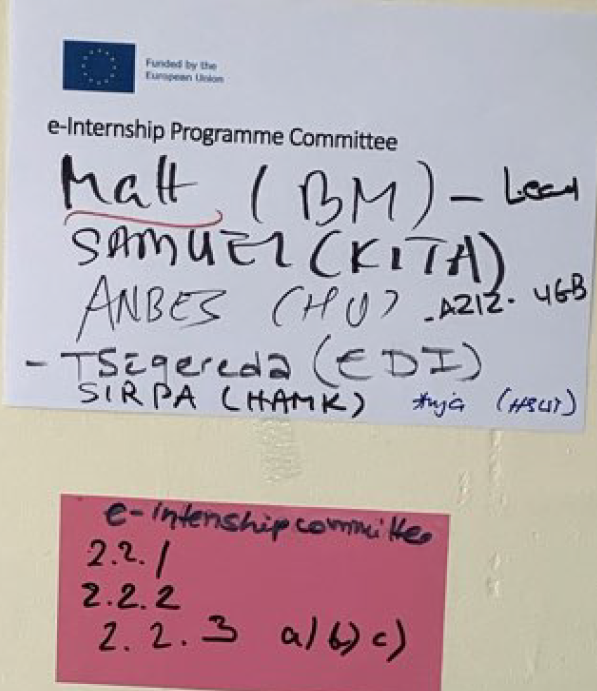 Funded by the
European Union
e-Internship Programme Committee
Matt (BM) - Lead
SAMUEL (KITA)
ANBES (HU) - AZIZ. UGB
- TSegereda (EDI)
SIRPA (HAMK) (HSUT)
e-intenship committee
2.2.1
2.2.2
2.2.3 a) b) c)